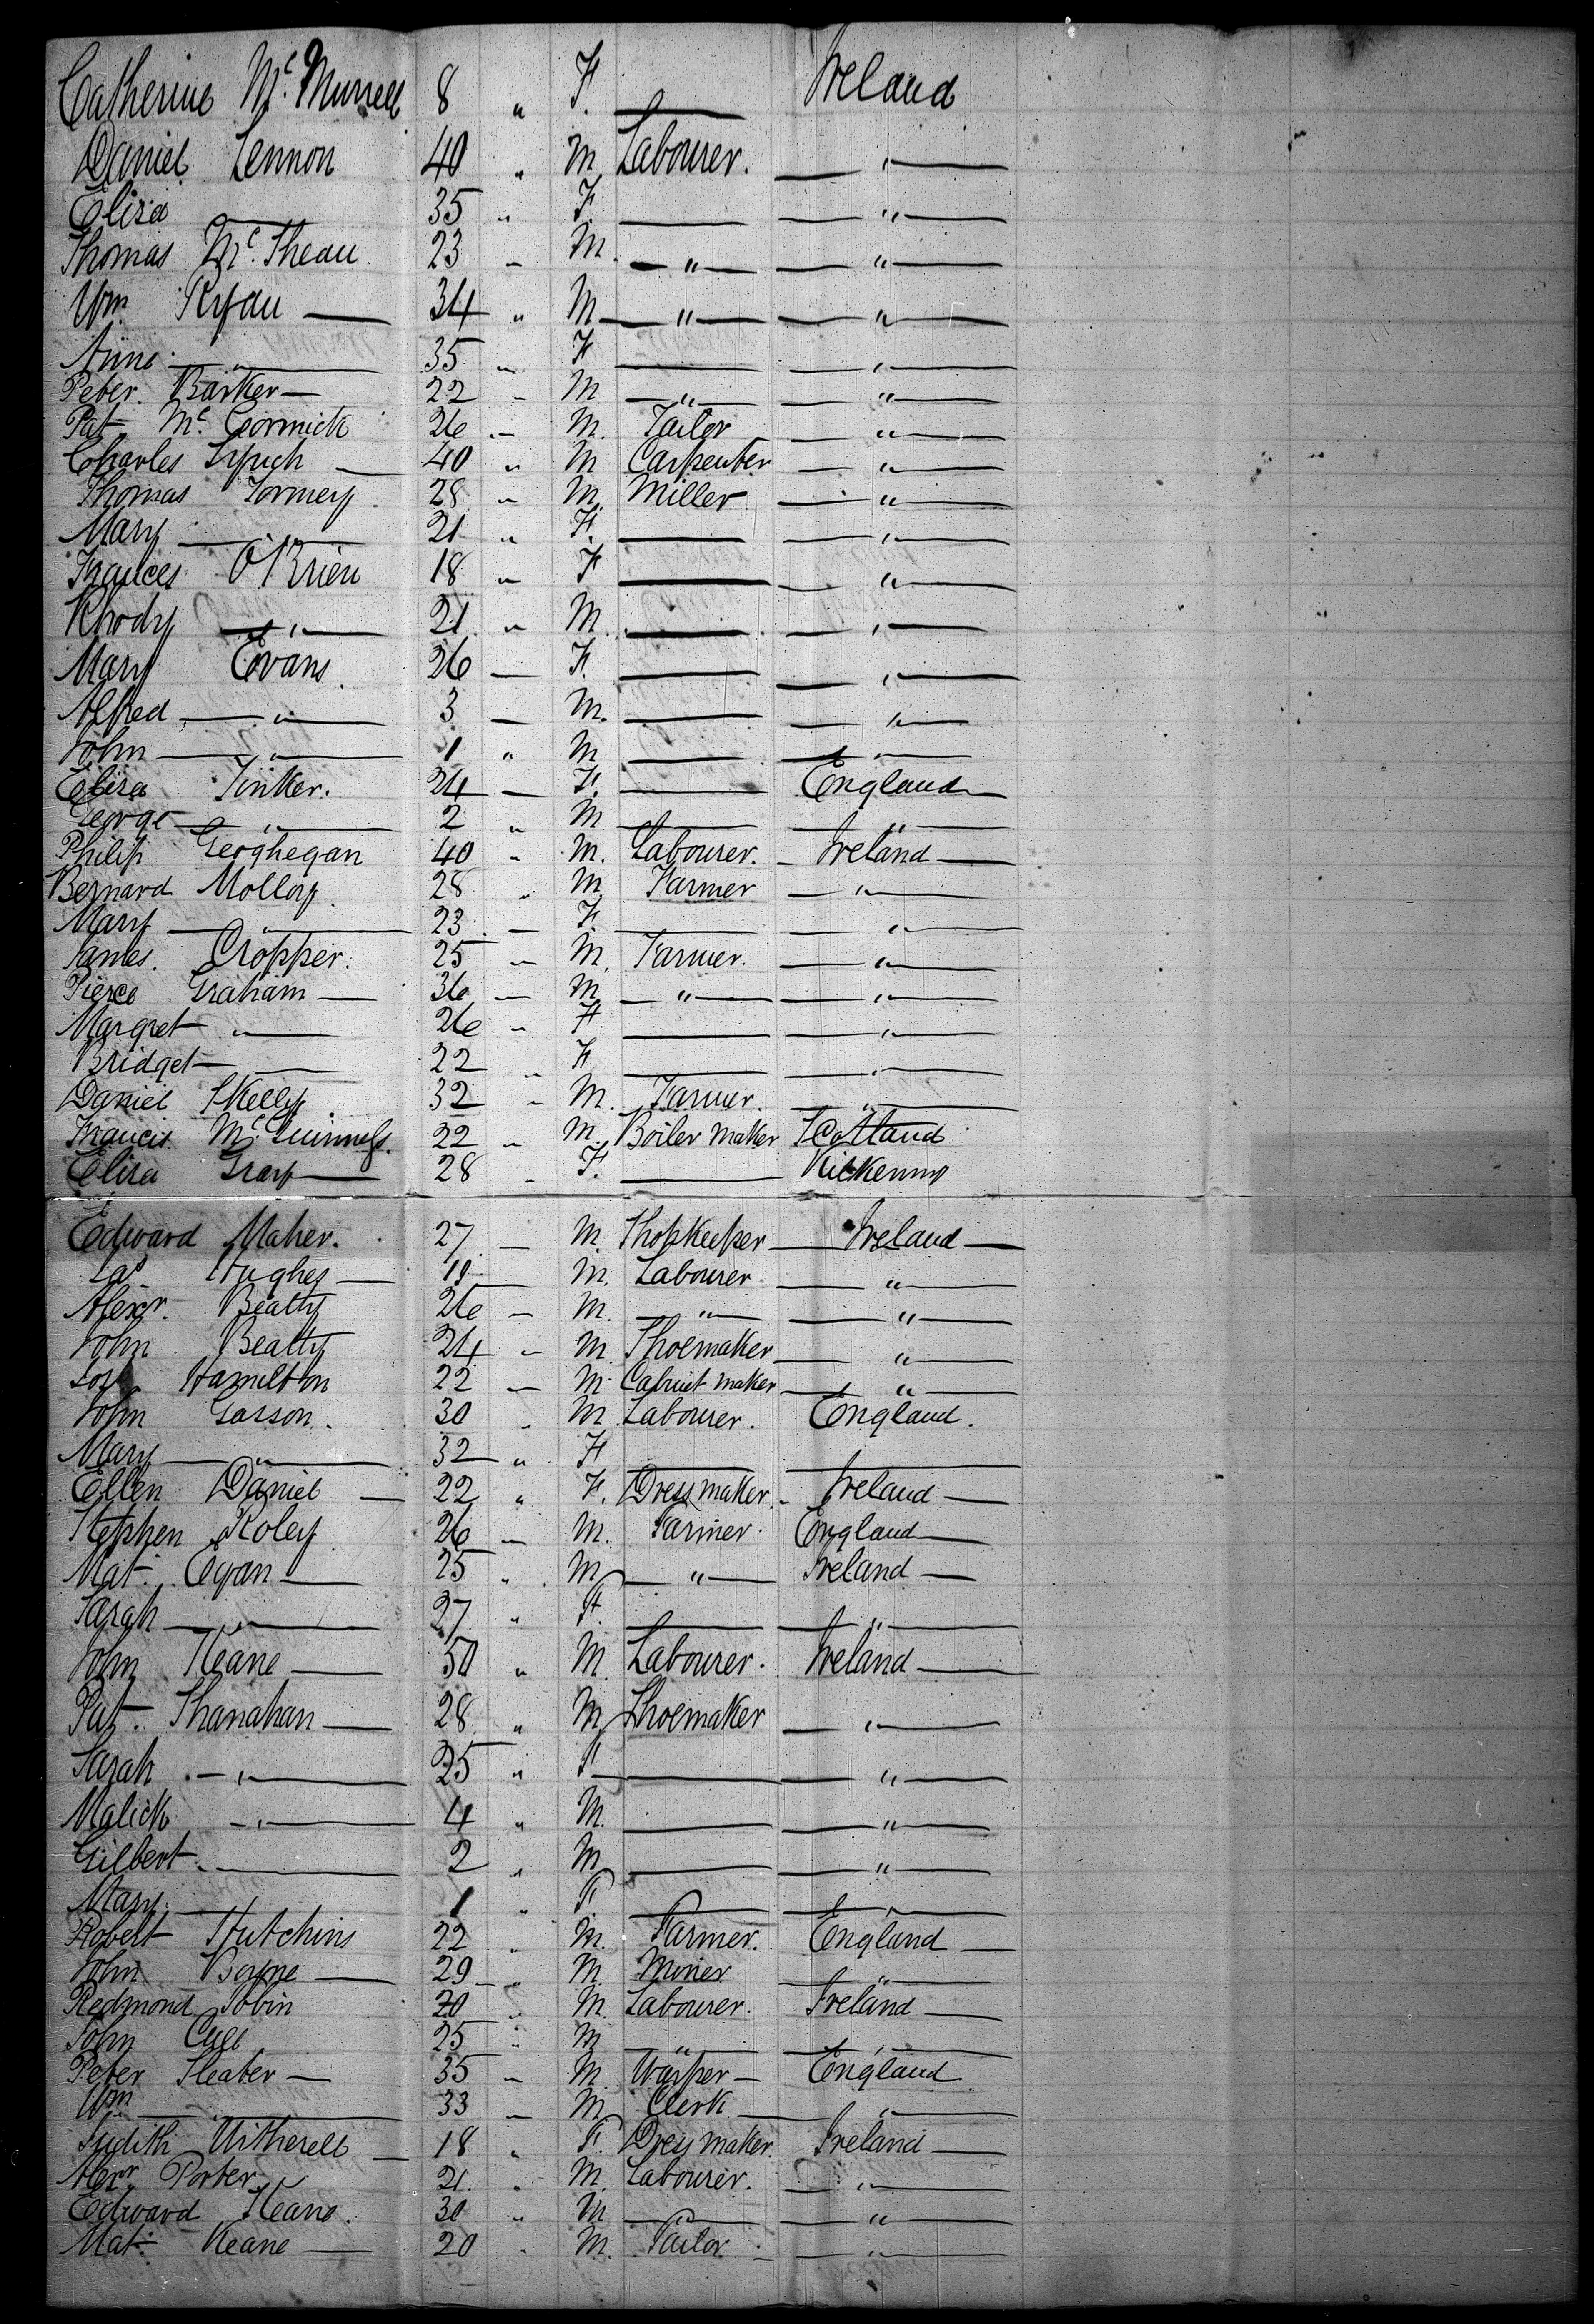 Catherine Mc. Murrell 8 " F. — Ireland
Daniel Lennon 40 " M Labourer. — " —
Eliza — 35 " F. — — " —
Thomas Mc. Shean 23 " M. — " — — " —
Wm Ryan — 34 " M — " — — " —
Anne — " — 35 " F — — " —
Peter. Barker — 22 " M — " — — " —
Pat Mc. Cormick 26 " M. Tailor — " —
Charles Lynch — 40 " M Carpenter — " —
Thomas Tormey 28 " M. Miller — " —
Mary — 21 " F. — — " —
Frances O'Brien 18 " F — — " —
Rhody — " — 21 " M. — — " —
Mary Evans. 26 — F. — — " —
Alfred — " — 3 — M. — — " —
John — " — 1 " M — — " —
Eliza Tinker. 24 — F. — England —
George — " — 2 " M — — " —
Philip Geoghegan 40 " M. Labourer. — Ireland —
Bernard Molloy 28 " M Farmer — " —
Mary — " — 23 — F. — — " —
James. Cropper. 25 " M. Farmer. — " —
Pierce Graham — 36 — M — " — — " —
Margret — " — 26 " F — — " —
Bridget — — 22 " F — — " —
Daniel Skelly 32 " M. Farmer. — " —
Francis Mc. Guinness. 22 " M. Boiler Maker Scotland
Eliza Gray — 28 " F. — Kilkenny
Edward Maher. 27 — M. Shopkeeper — Ireland —
Jas Hughes — 19 — M. Labourer — " —
Alexr. Beatty 26 — M. — " — — " —
John Beatty 24 " M. Shoemaker — " —
Jos. Hamilton 22 — M. Cabinet maker — " —
John Gasson. 30 " M. Labourer. England.
Mary — " — 32 " F — —
Ellen Daniel — 22 " F. Dress maker. — Ireland —
Stephen Roley 26 — M. Farmer. England —
Mat. Egan — 25 " M — " — Ireland —
Sarah — " — 27 " F. — — " —
John Keane — 50 " M. Labourer. Ireland —
Pat. Shanahan — 28 " M Shoemaker — " —
Sarah. — " — 25 " F — — " —
Malick — " — 4 " M. — — " —
Gilbert — 2 " M — — " —
Mary. — 1 " F — — " —
Robert Hutchins 22 " M. Farmer. England —
John Bayne — 29 " M. Miner — " —
Redmond Tobin 20 " M. Labourer. Ireland —
John Cull 25 " M — " — — " —
Peter Sleater — 35 " M. Warper — England
Wm — 33 " M Clerk — " —
Judith Witherell — 18 " F. Dress maker. Ireland —
Alexr Porter 21. " M. Labourer. — " —
Edward Keane. 30 " M — " — — " —
Mat. Keane — 20 " M. Tailor — " —